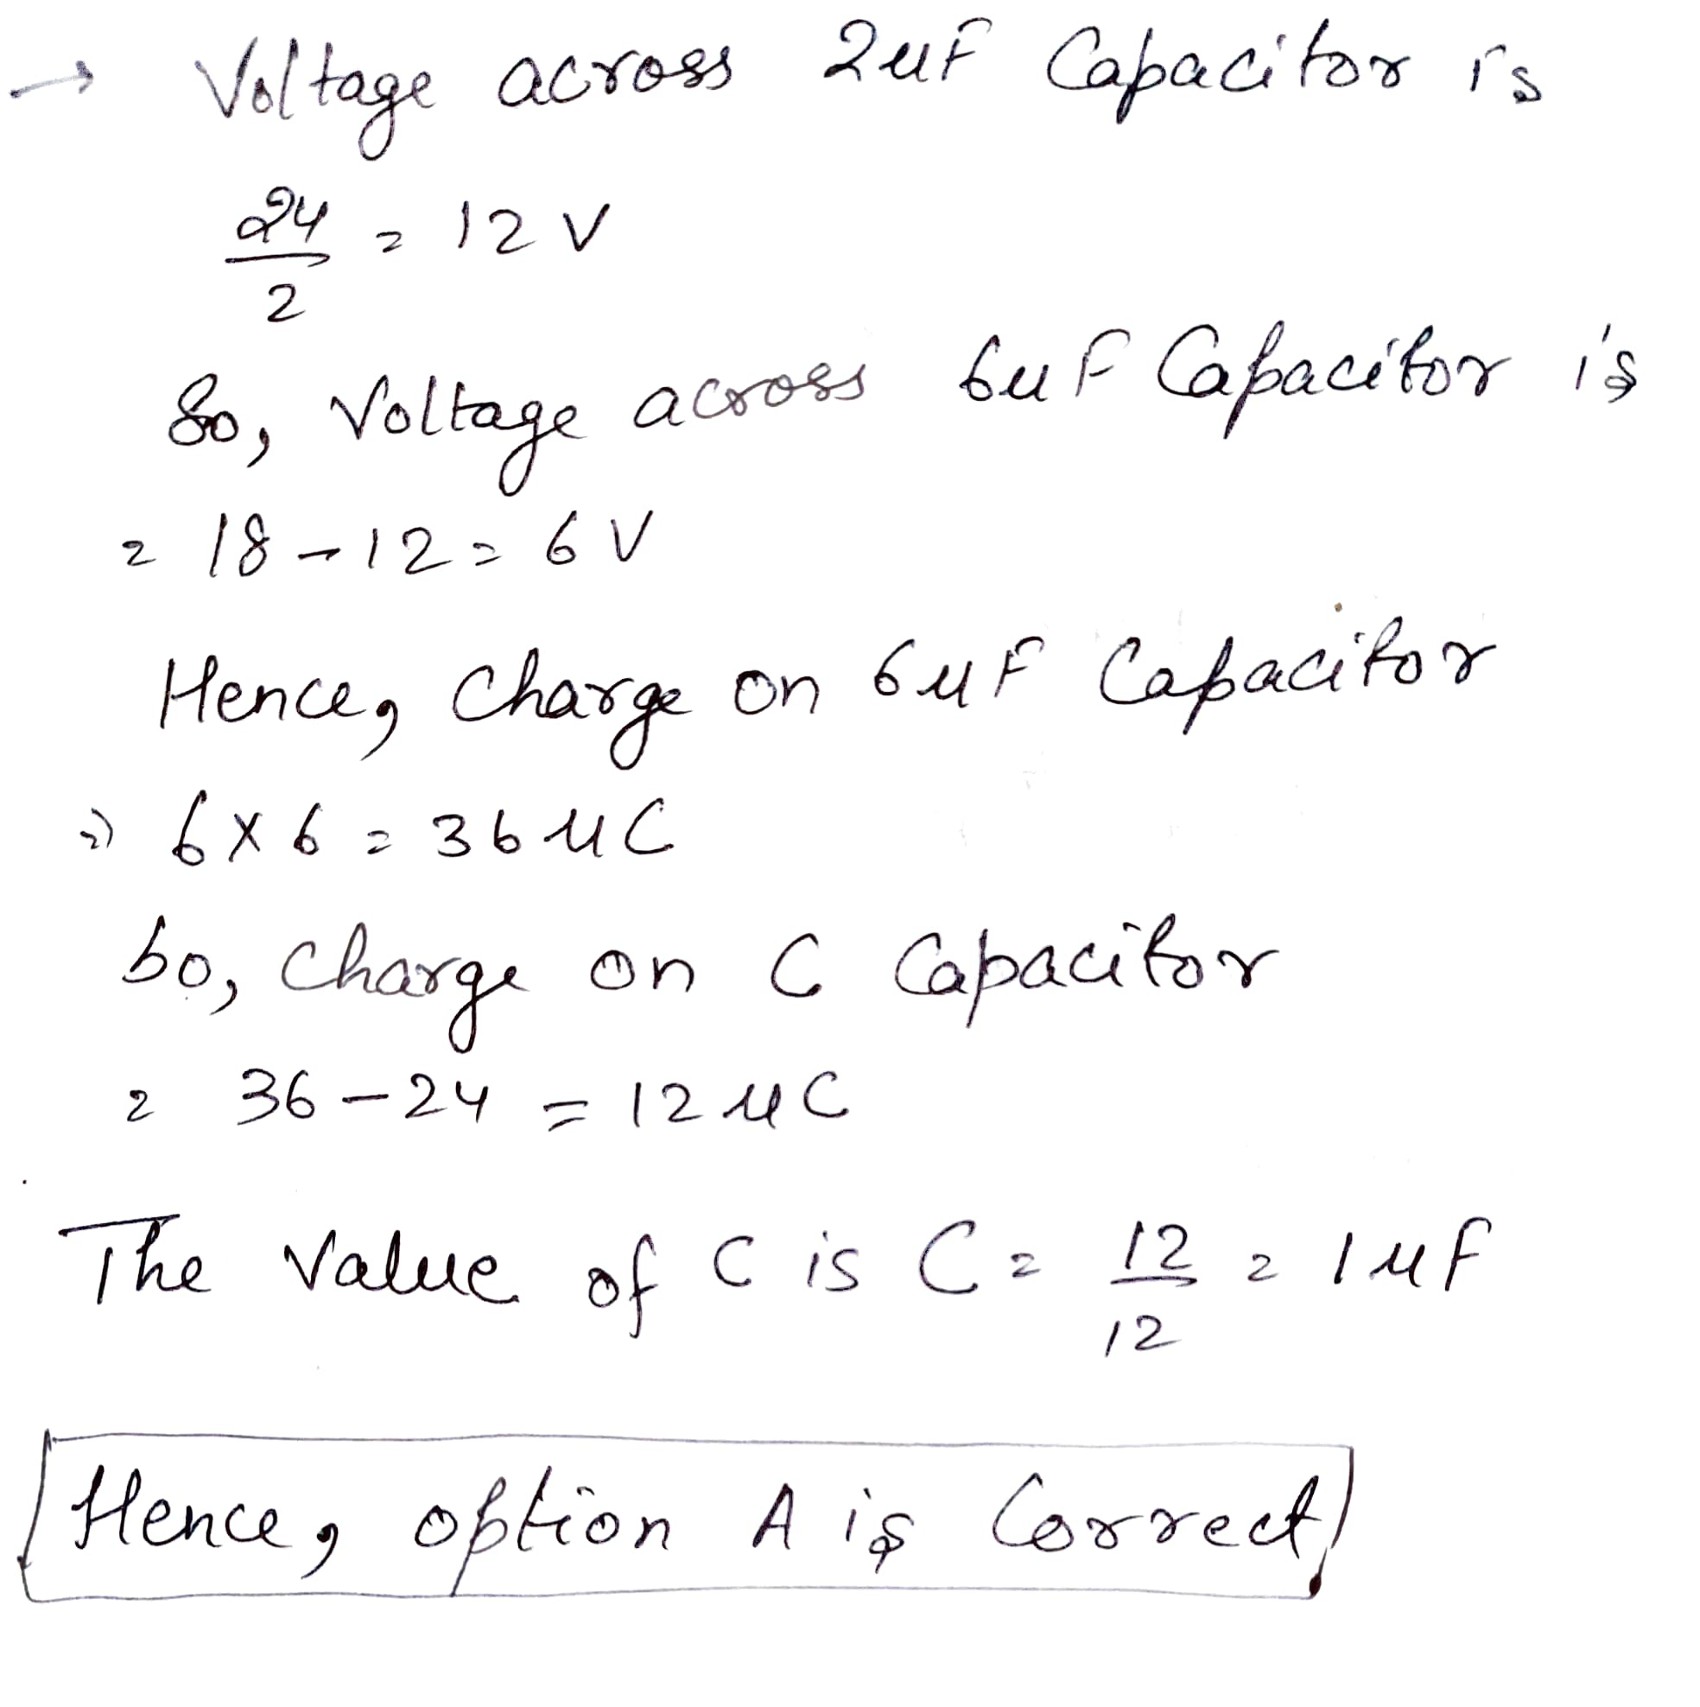 → Voltage across 2μF Capacitor is
24/2 = 12 V
So, Voltage across 6μF Capacitor is
= 18 - 12 = 6 V
Hence, Charge on 6μF Capacitor
⇒ 6 × 6 = 36 μC
So, Charge on C Capacitor
= 36 - 24 = 12 μC
The Value of C is C = 12/12 = 1μF
Hence, option A is Correct